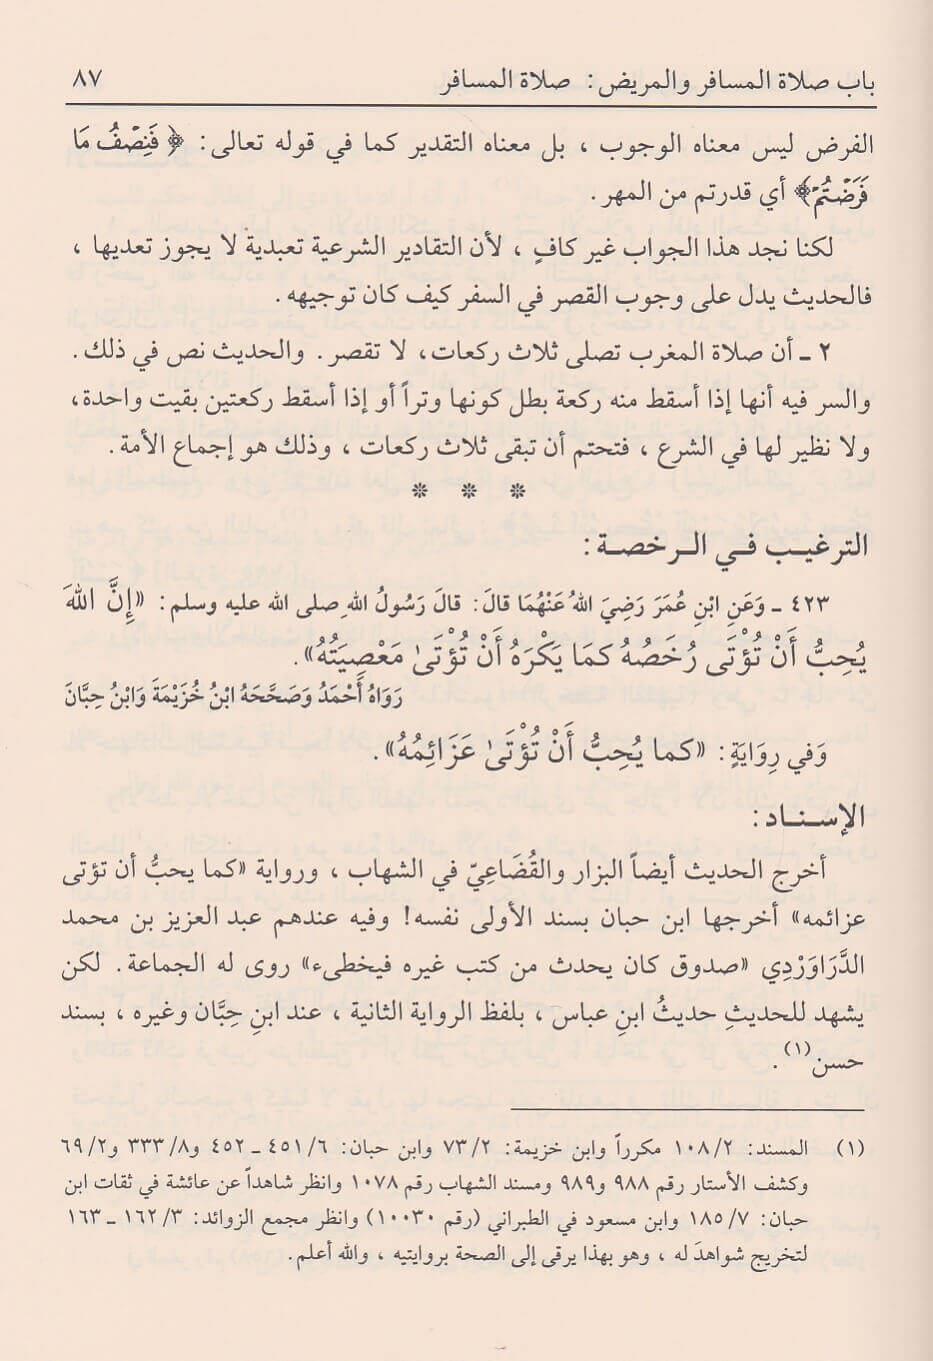 باب صلاة المسافر والمريض: صلاة المسافر ٨٧
الفرض ليس معناه الوجوب ، بل معناه التقدير كما في قوله تعالى: ﴿ فَنِصْفُ مَا
فَرَضْتُمْ﴾ أي قدرتم من المهر.
لكنا نجد هذا الجواب غير كافٍ ، لأن التقادير الشرعية تعبدية لا يجوز تعديها ،
فالحديث يدل على وجوب القصر في السفر كيف كان توجيهه.
٢ ـ أن صلاة المغرب تصلى ثلاث ركعات، لا تقصر. والحديث نص في ذلك.
والسر فيه أنها إذا أسقط منه ركعة بطل كونها وتراً أو إذا أسقط ركعتين بقيت واحدة،
ولا نظير لها في الشرع ، فتحتم أن تبقى ثلاث ركعات ، وذلك هو إجماع الأمة.
* * *
الترغيب في الرخصة:
٤٢٣ ـ وَعَنِ ابْنِ عُمَرَ رَضِيَ اللهُ عَنْهُمَا قالَ: قالَ رَسُولُ اللهِ صلى الله عليه وسلم: «إِنَّ اللهَ
يُحِبُّ أَنْ تُؤْتَى رُخَصُهُ كمَا يَكْرَهُ أَنْ تُؤْتَىٰ مَعْصِيَتُهُ».
رَوَاهُ أَحْمَدُ وَصَحَّحَهُ ابْنُ خُزَيْمَةَ وَابْنُ حِبَّانَ
وَفي رِوَايَةٍ: «كما يُحِبُّ أَنْ تُؤْتَىٰ عَزَائِمُهُ».
الإسناد:
أخرج الحديث أيضاً البزار والقُضَاعِيّ في الشهاب ، ورواية «كما يحبُّ أن تؤتى
عزائمه» أخرجها ابن حبان بسند الأولى نفسه! وفيه عندهم عبد العزيز بن محمد
الدَّرَاوَرْدِي «صدوق كان يحدث من كتب غيره فيخطىء» روى له الجماعة. لكن
يشهد للحديثِ حديثُ ابنِ عباس ، بلفظ الرواية الثانية ، عند ابنِ حِبَّان وغيره ، بسند
حسن(١).
(١) المسند: ١٠٨/٢ مكرراً وابن خزيمة: ٧٣/٢ وابن حبان: ٤٥١/٦ ـ ٤٥٢ و٣٣٣/٨ و٦٩/٢
وكشف الأستار رقم ٩٨٨ و٩٨٩ ومسند الشهاب رقم ١٠٧٨ وانظر شاهداً عن عائشة في ثقات ابن
حبان: ١٨٥/٧ وابن مسعود في الطبراني (رقم ١٠٠٣٠) وانظر مجمع الزوائد: ١٦٢/٣ ـ ١٦٣
لتخريج شواهدَ له ، وهو بهذا يرقى إلى الصحة بروايتيه ، والله أعلم.